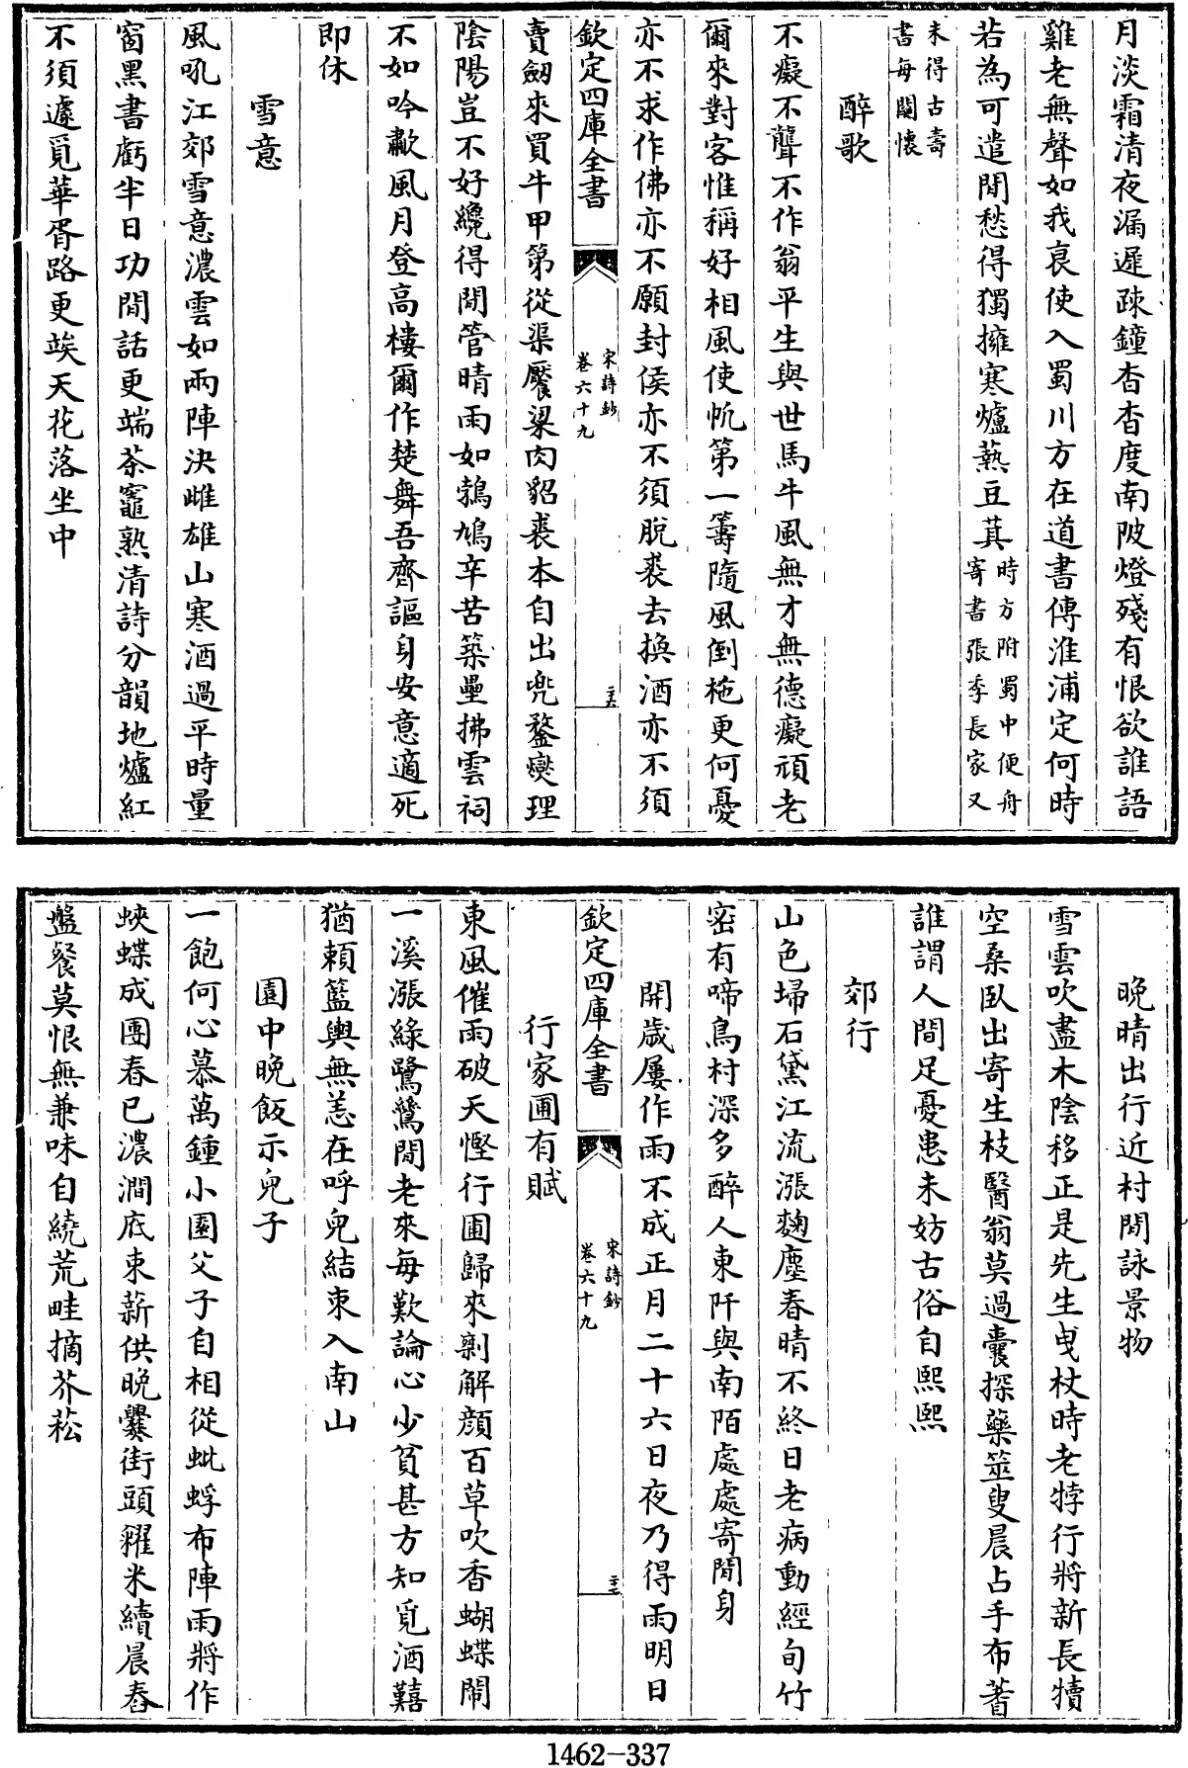 月淡霜清夜漏遲疎鐘杳杳度南陂燈殘有恨欲誰語
雞老無聲如我衰使入蜀川方在道書傳淮浦定何時
若為可遣閒愁得獨擁寒爐爇豆萁時方附蜀中便舟寄書張季長家又
未得古壽書每關懷
醉歌
不癡不聾不作翁平生與世馬牛風無才無德癡頑老
爾來對客惟稱好相風使帆第一籌隨風倒柂更何憂
亦不求作佛亦不願封侯亦不須脫裘去換酒亦不須
欽定四庫全書
宋詩鈔
卷六十九
三十六
賣劒來買牛甲第從渠饜粱肉貂裘本自出兜鍪爕理
陰陽豈不好纔得閒管晴雨如鵓鳩辛苦築壘拂雲祠
不如吟歗風月登高樓爾作楚舞吾齊謳身安意適死
即休
雪意
風吼江郊雪意濃雲如兩陣決雌雄山寒酒過平時量
窗黑書虧半日功閒話更端茶竈熟清詩分韻地爐紅
不須遽覓華胥路更竢天花落坐中
晚晴出行近村閒詠景物
雪雲吹盡木陰移正是先生曵杖時老牸行將新長犢
空桑臥出寄生枝醫翁莫過囊探藥筮叟晨占手布蓍
誰謂人間足憂患未妨古俗自熙熙
郊行
山色埽石黛江流漲麴塵春晴不終日老病動經旬竹
密有啼鳥村深多醉人東阡與南陌處處寄閒身
開歲屢作雨不成正月二十六日夜乃得雨明日
欽定四庫全書
宋詩鈔
卷六十九
三十七
行家圃有賦
東風催雨破天慳行圃歸來剩解顔百草吹香蝴蝶鬧
一溪漲綠鷺鷥閒老來每歎論心少貧甚方知覓酒囏
猶賴籃輿無恙在呼兒結束入南山
園中晚飯示兒子
一飽何心慕萬鍾小園父子自相從蚍蜉布陣雨將作
蛺蝶成團春已濃澗底束薪供晚爨街頭糴米續晨舂
盤餐莫恨無兼味自繞荒畦摘芥菘
1462-337